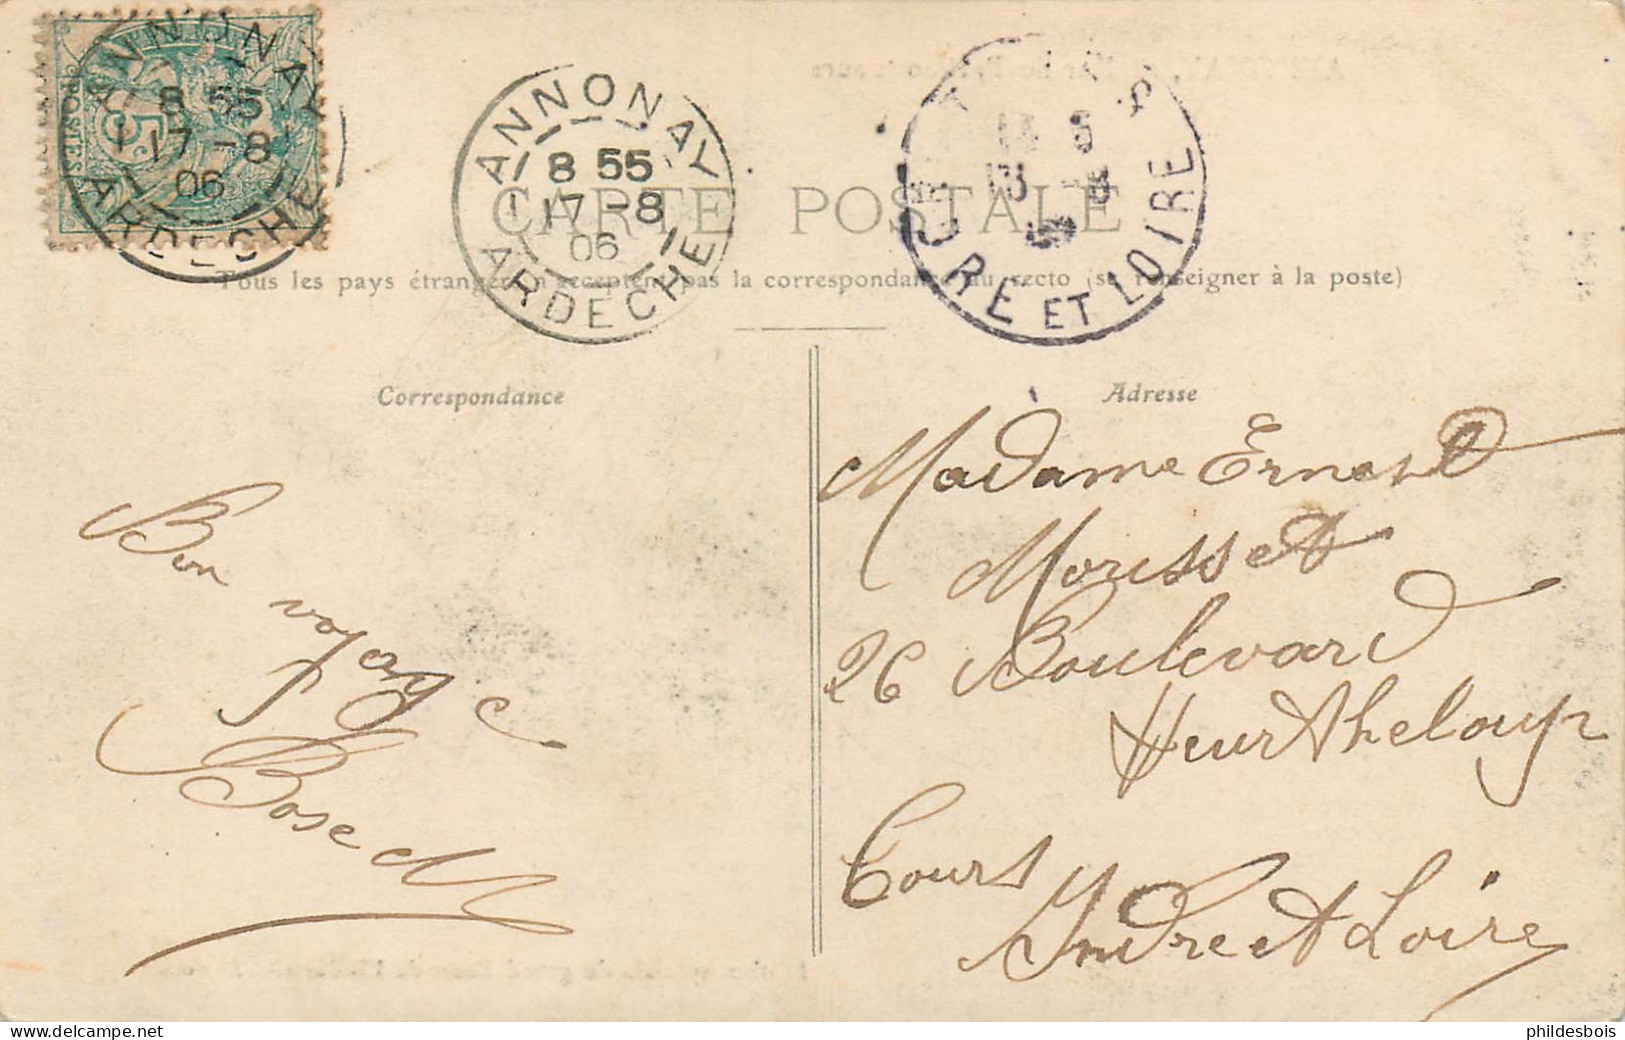 ANNONAY
8 55
17 -8
06
ARDECHE
POSTES
5
ANNONAY
8 55
17 -8
06
ARDECHE
TOURS
INDRE ET LOIRE
CARTE POSTALE
Tous les pays étrangers n'acceptent pas la correspondance au recto (se renseigner à la poste)
Correspondance
Adresse
Bon
voyage
Madame Ernest
Mousset
26 Boulevard
Heurtheloup
Tours
Indre et Loire
www.delcampe.net
phildesbois